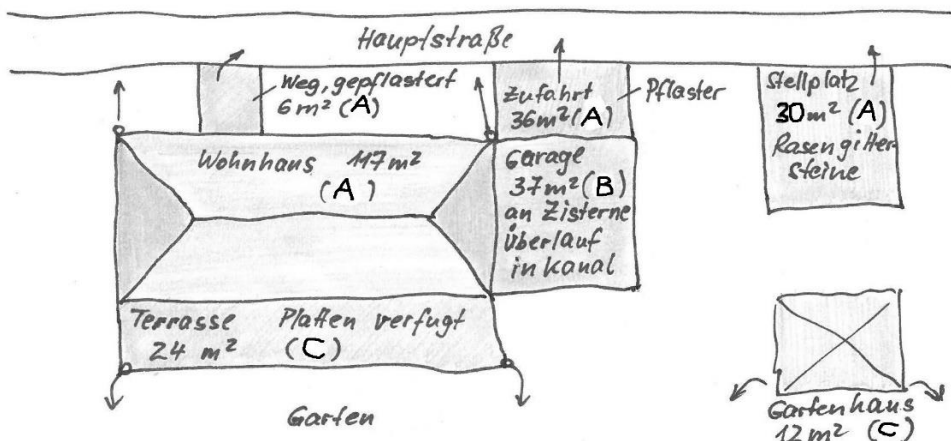 Hauptstraße
Weg, gepflastert
6m² (A)
Zufahrt
36m² (A)
Pflaster
Stellplatz
30m² (A)
Rasengitter-
steine
Wohnhaus 117m²
(A)
Garage
37m² (B)
an Zisterne
Überlauf
in Kanal
Terrasse Platten verfugt
24 m² (C)
Garten
Gartenhaus
12m² (C)